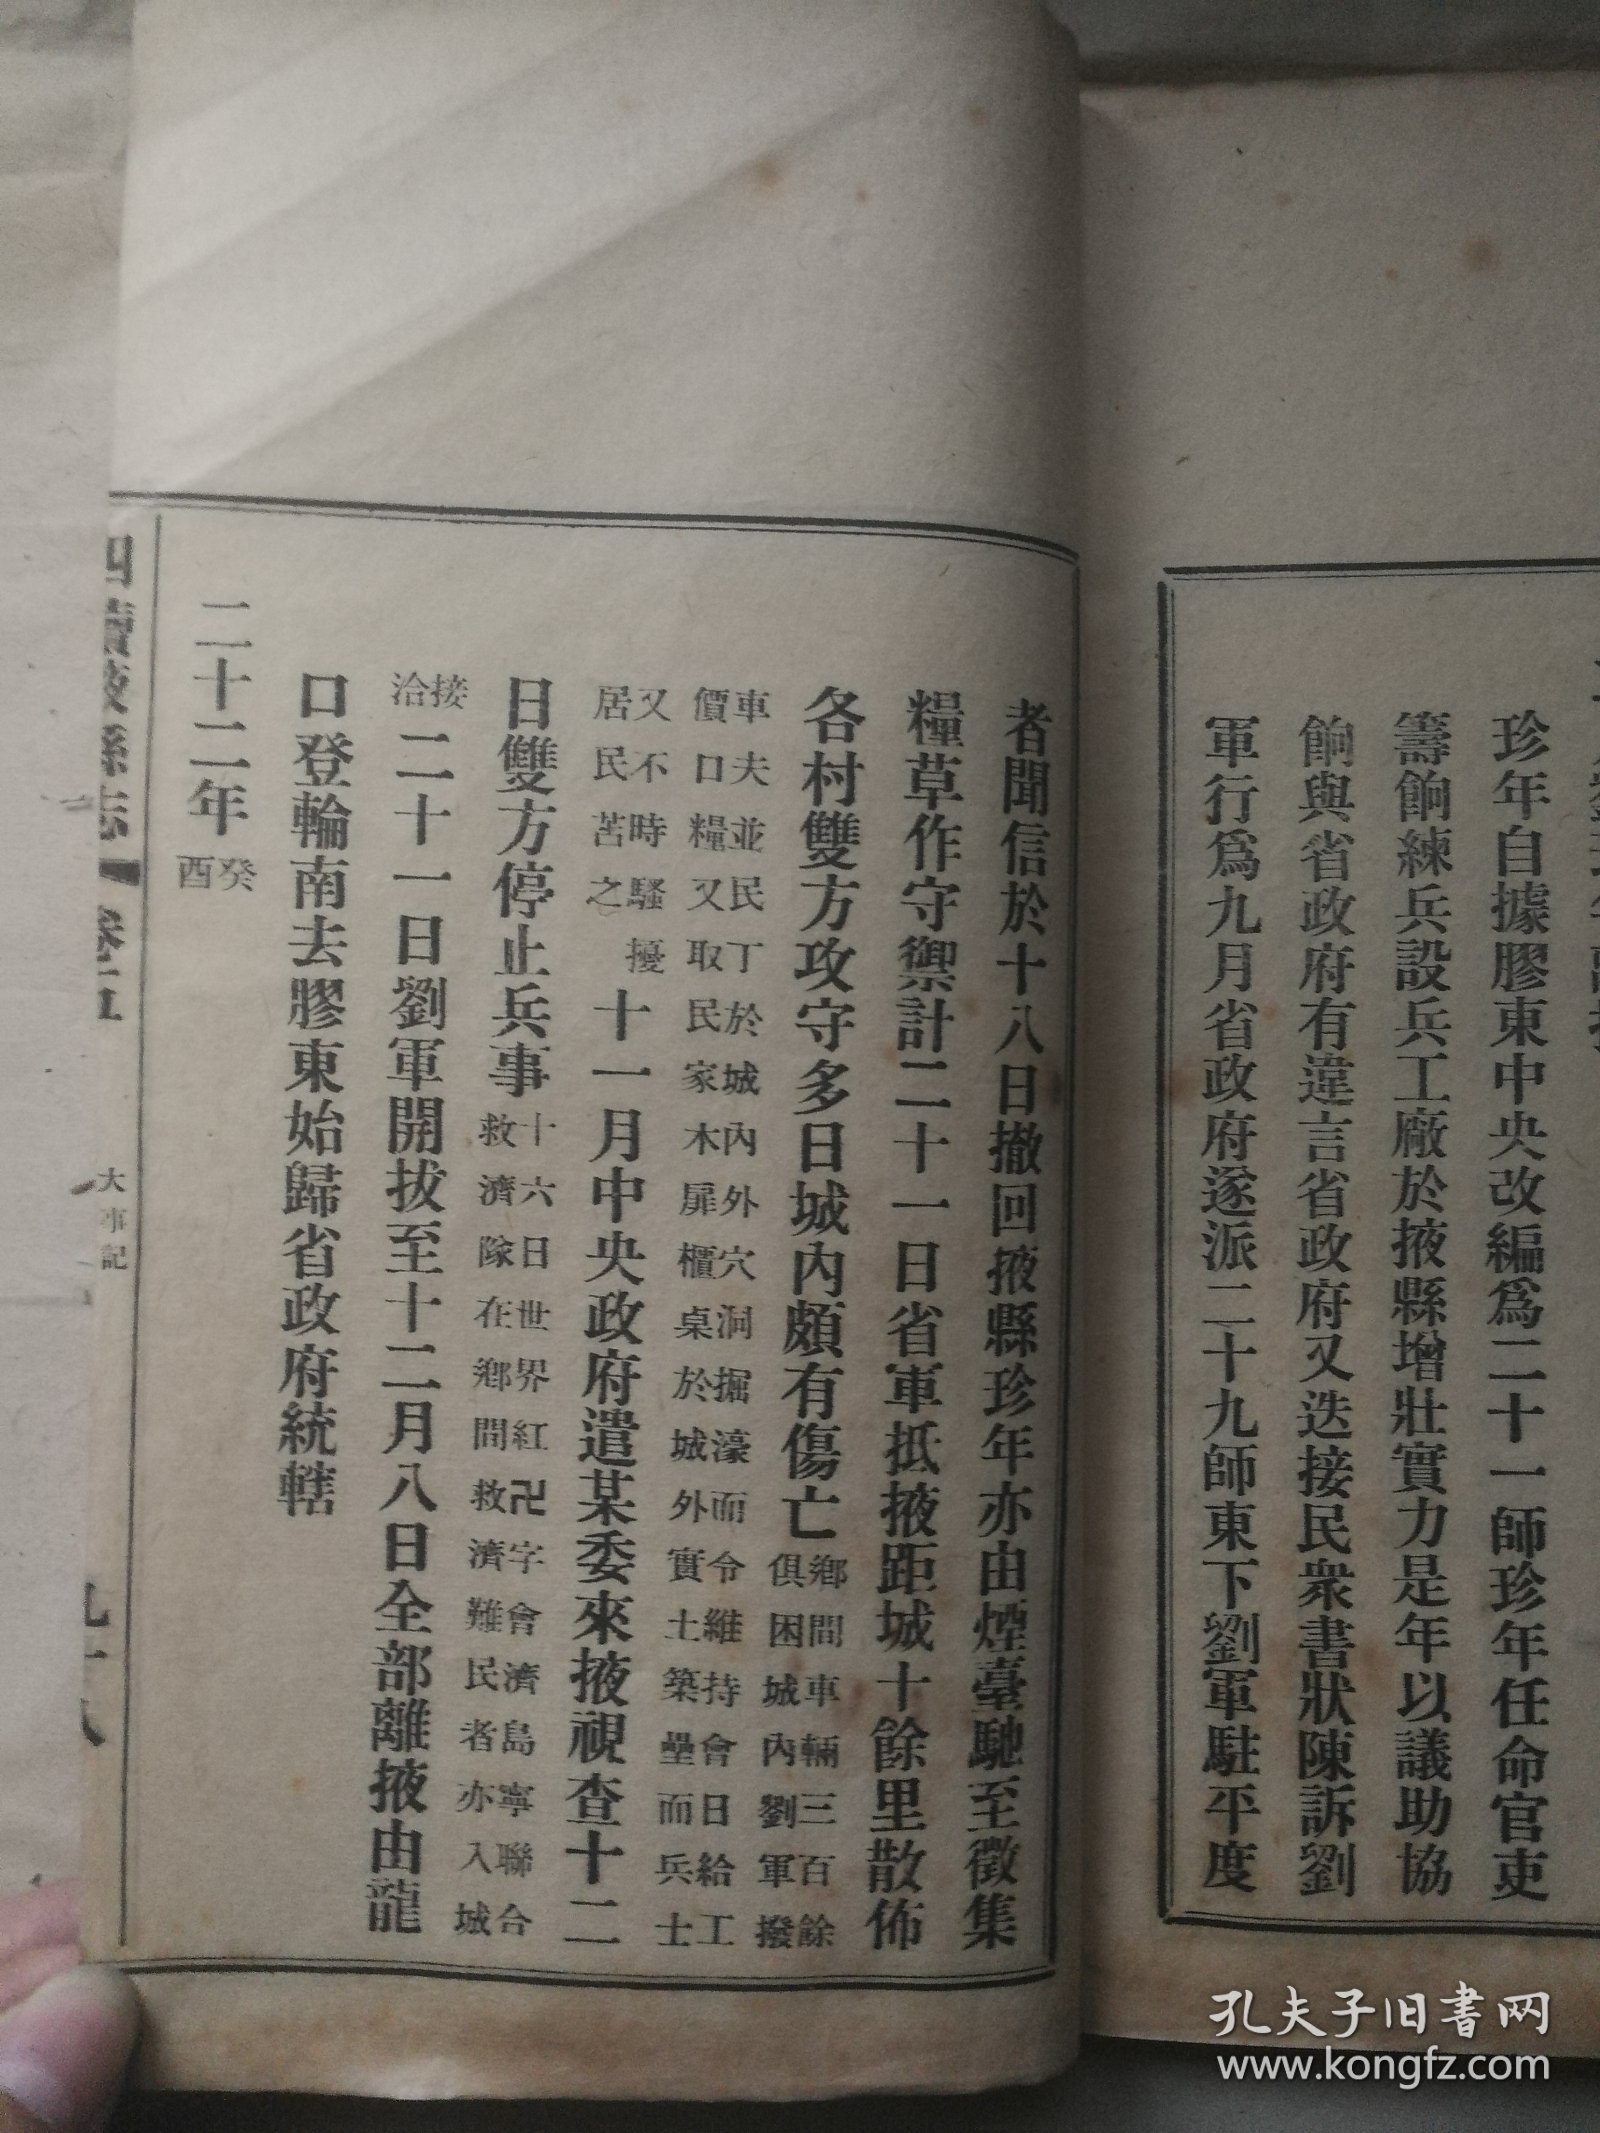 珍年自據膠東中央改編爲二十一師珍年任命官吏
籌餉練兵設兵工廠於掖縣增壯實力是年以議助協
餉與省政府有違言省政府又迭接民衆書狀陳訴劉
軍行爲九月省政府遂派二十九師東下劉軍駐平度
者聞信於十八日撤回掖縣珍年亦由煙臺馳至徵集
糧草作守禦計二十一日省軍抵掖距城十餘里散佈
各村雙方攻守多日城內頗有傷亡鄉間車輛三百餘
俱困城內劉軍撥
車夫並民丁於城內外穴洞掘濠而令維持會日給工
價口糧又取民家木扉櫃桌於城外實土築壘而兵士
又不時騷擾
居民苦之十一月中央政府遣某委來掖視查十二
日雙方停止兵事十六日世界紅卍字會濟島寧聯合
救濟隊在鄉間救濟難民者亦入城
接
洽二十一日劉軍開拔至十二月八日全部離掖由龍
口登輪南去膠東始歸省政府統轄
二十二年癸
酉
四續掖縣志 卷五 大事記 九十八
孔夫子旧书网
www.kongfz.com